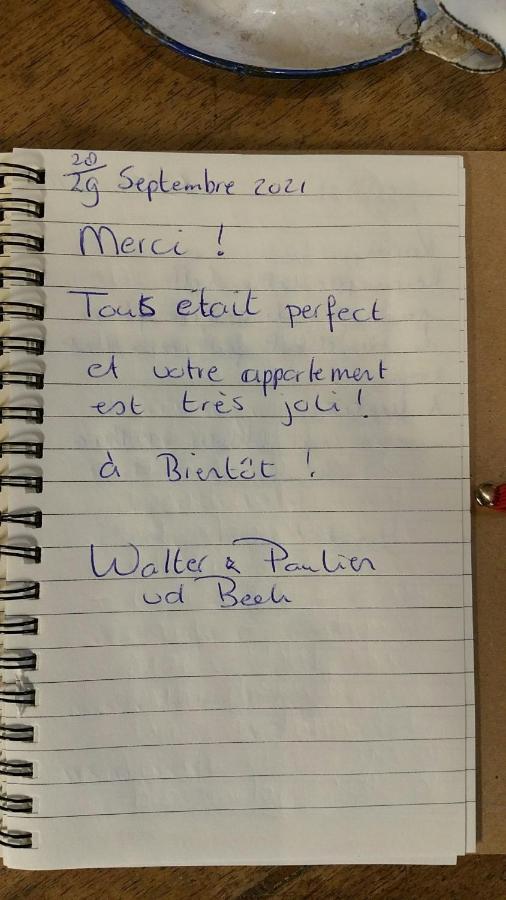 28/29 Septembre 2021
Merci !
Touts était perfect
et votre appartement
est très joli !
à Bientôt !
Walter & Paulien
vd Beek